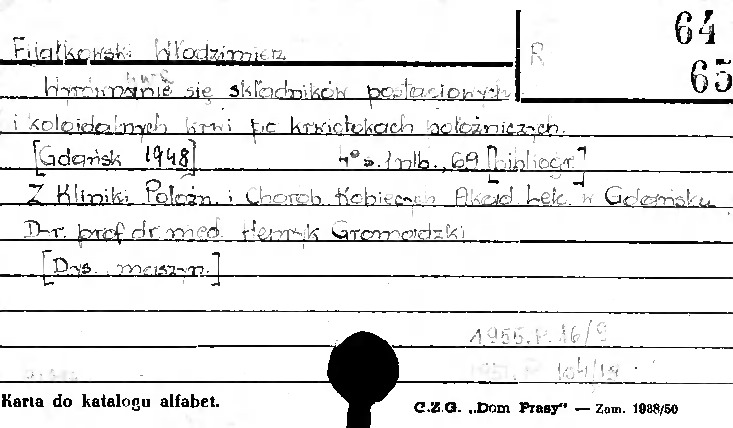 64
R
65
Fijałkowski Włodzimierz
Wyrównanie się składników postaciowych
i koloidalnych krwi po krwotokach położniczych.
[Gdańsk 1948] 4° s. 1 nlb., 69 [bibliogr.]
Z Kliniki Położn. i Chorób Kobiecych Akad. Lek. w Gdańsku
Dr. prof. dr. med. Henryk Gromadzki
[Dys. maszyn.]
1955.P.16/9
104/19
Karta do katalogu alfabet.
C.Z.G. „Dom Prasy" — Zam. 1988/50